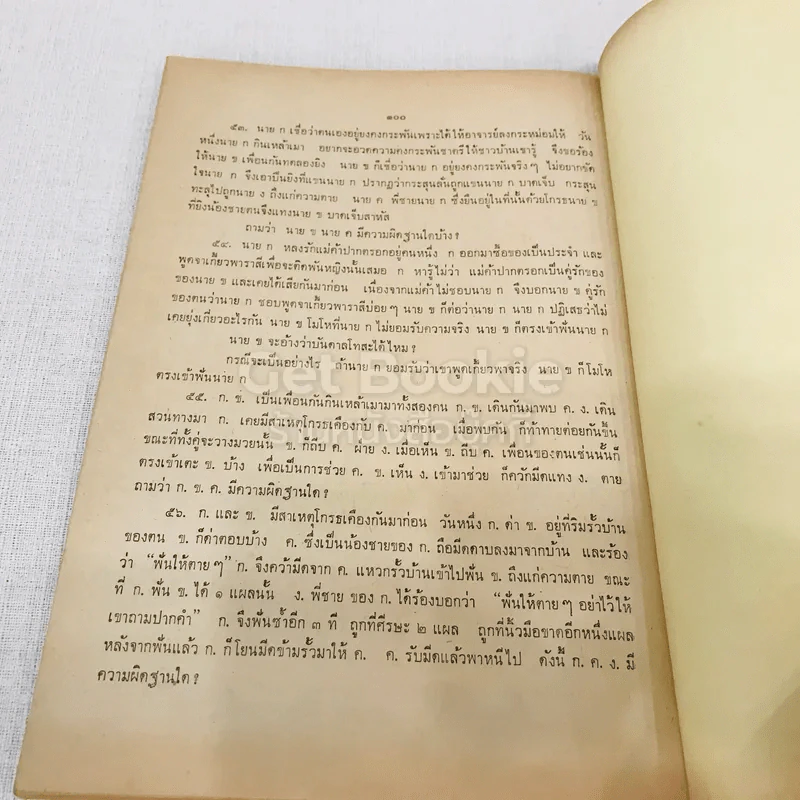 ๑๐๐
๕๓. นาย ก เชื่อว่าตนเองอยู่ยงคงกระพันเพราะได้ให้อาจารย์ลงกระหม่อมให้ วัน
หนึ่งนาย ก กินเหล้าเมา อยากจะอวดความคงกระพันชาตรีให้ชาวบ้านเขารู้ จึงขอร้อง
ให้นาย ข เพื่อนกันทดลองยิง นาย ข ก็เชื่อว่านาย ก อยู่ยงคงกระพันจริงๆ ไม่อยากขัด
ใจนาย ก จึงเอาปืนยิงที่แขนนาย ก ปรากฏว่ากระสุนลั่นถูกแขนนาย ก บาดเจ็บ กระสุน
ทะลุไปถูกนาย ง ถึงแก่ความตาย นาย ค พี่ชายนาย ก ซึ่งยืนอยู่ในที่นั้นด้วยโกรธนาย ข
ที่ยิงน้องชายตนจึงแทงนาย ข บาดเจ็บสาหัส
ถามว่า นาย ข นาย ค มีความผิดฐานใดบ้าง?
๕๔. นาย ก หลงรักแม่ค้าปากตรอกอยู่คนหนึ่ง ก ออกมาซื้อของเป็นประจำ และ
พูดจาเกี้ยวพาราสีเพื่อจะติดพันหญิงนั้นเสมอ ก หารู้ไม่ว่า แม่ค้าปากตรอกเป็นคู่รักของ
ของนาย ข และเคยได้เสียกันมาก่อน เนื่องจากแม่ค้าไม่ชอบนาย ก จึงบอกนาย ข คู่รัก
ของตนว่านาย ก ชอบพูดจาเกี้ยวพาราสีบ่อยๆ นาย ข ก็ต่อว่านาย ก นาย ก ปฏิเสธว่าไม่
เคยยุ่งเกี่ยวอะไรกัน นาย ข โมโหที่นาย ก ไม่ยอมรับความจริง นาย ข ก็ตรงเข้าฟันนาย ก
นาย ข จะอ้างว่าบันดาลโทสะได้ไหม?
กรณีจะเป็นอย่างไร ถ้านาย ก ยอมรับว่าเขาพูดเกี้ยวพาจริง นาย ข ก็โมโห
ตรงเข้าฟันนาย ก
๕๕. ก. ข. เป็นเพื่อนกันกินเหล้าเมามาทั้งสองคน ก. ข. เดินกันมาพบ ค. ง. เดิน
สวนทางมา ก. เคยมีสาเหตุโกรธเคืองกับ ค. มาก่อน เมื่อพบกัน ก็ท้าทายต่อยกันขึ้น
ขณะที่ทั้งคู่จะวางมวยนั้น ข. ก็ถีบ ค. ฝ่าย ง. เมื่อเห็น ข. ถีบ ค. เพื่อนของตนเช่นนั้นก็
ตรงเข้าเตะ ข. บ้าง เพื่อเป็นการช่วย ค. ข. เห็น ง. เข้ามาช่วย ก็ควักมีดแทง ง. ตาย
ถามว่า ก. ข. ค. มีความผิดฐานใด?
๕๖. ก. และ ข. มีสาเหตุโกรธเคืองกันมาก่อน วันหนึ่ง ก. ด่า ข. อยู่ที่ริมรั้วบ้าน
ของตน ข. ก็ด่าตอบบ้าง ค. ซึ่งเป็นน้องชายของ ก. ถือมีดดาบลงมาจากบ้าน และร้อง
ว่า “ฟันให้ตายๆ” ก. จึงคว้ามีดจาก ค. แหวกรั้วบ้านเข้าไปฟัน ข. ถึงแก่ความตาย ขณะ
ที่ ก. ฟัน ข. ได้ ๑ แผลนั้น ง. พี่ชาย ของ ก. ได้ร้องบอกว่า “ฟันให้ตายๆ อย่าไว้ให้
เขาถามปากคำ” ก. จึงฟันซ้ำอีก ๓ ที ถูกที่ศีรษะ ๒ แผล ถูกที่นิ้วมือขาดอีกหนึ่งแผล
หลังจากฟันแล้ว ก. ก็โยนมีดข้ามรั้วมาให้ ค. ค. รับมีดแล้วพาหนีไป ดังนี้ ก. ค. ง. มี
ความผิดฐานใด?
Get Bookie